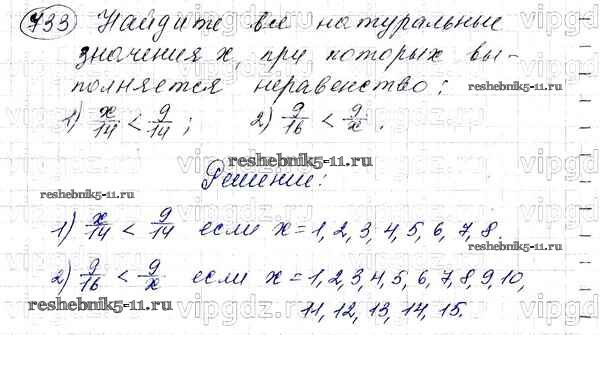 733 Найдите все натуральные
значения x, при которых вы-
полняется неравенство:
1) x/14 < 9/14; 2) 9/16 < 9/x.
reshebnik5-11.ru
Решение:
1) x/14 < 9/14 если x = 1, 2, 3, 4, 5, 6, 7, 8.
2) 9/16 < 9/x если x = 1, 2, 3, 4, 5, 6, 7, 8, 9, 10,
11, 12, 13, 14, 15.
reshebnik5-11.ru
reshebnik5-11.ru
reshebnik5-11.ru
reshebnik5-11.ru
vipgdz.ru